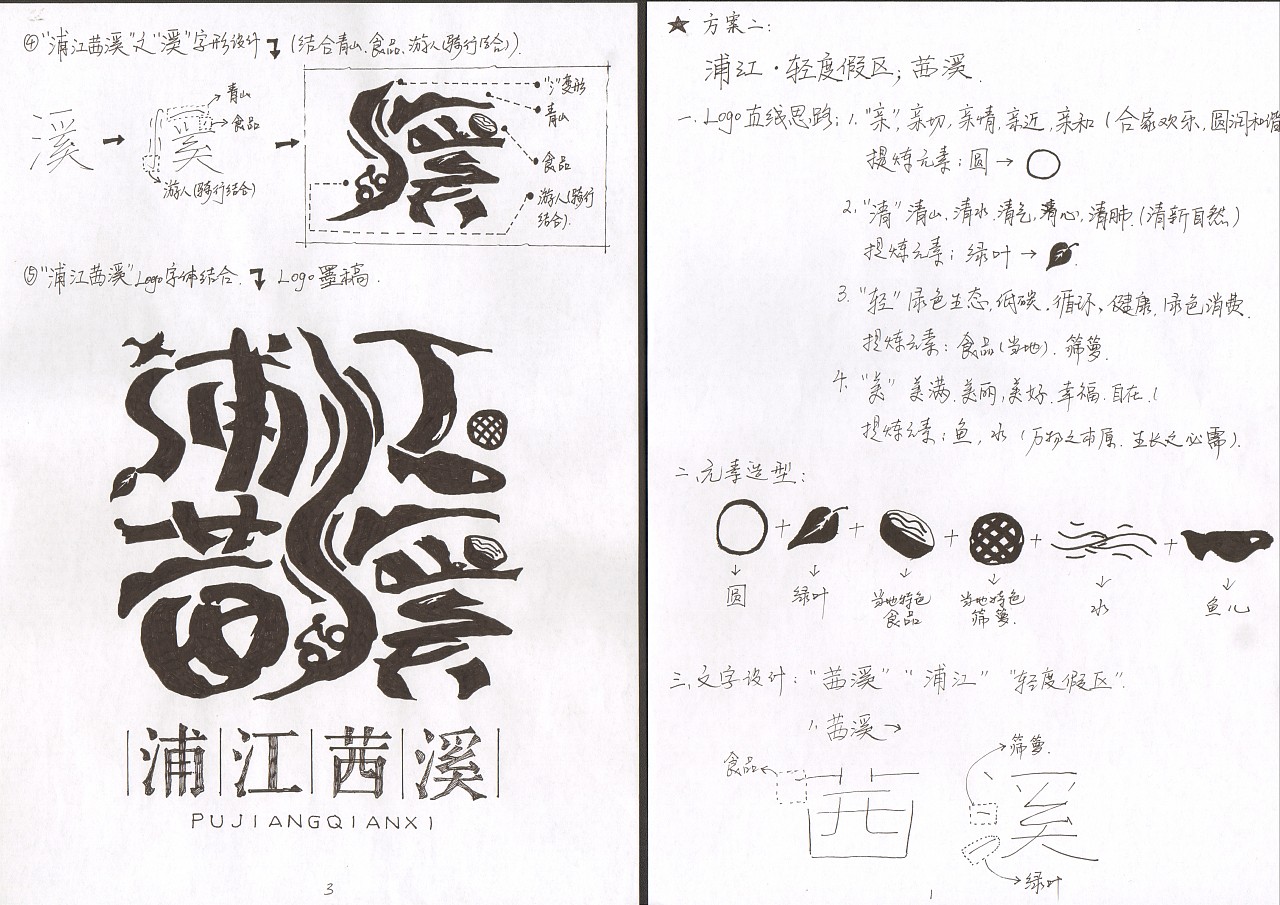 ④"浦江茜溪"之"溪"字形设计 (结合青山、食品、游人(骑行结合)).
溪
青山
食品
游人(骑行结合)
"氵"变形
青山
食品
游人(骑行
结合).
⑤"浦江茜溪"Logo字体结合. Logo墨稿.
浦江
茜溪
浦江茜溪
PUJIANGQIANXI
3
★ 方案二:
浦江·轻度假区;茜溪.
一. Logo直线思路: 1."亲"亲切,亲情,亲近,亲和(合家欢乐,圆润和谐
提炼元素:圆→
2."清"清山,清水,清气,清心,清肺.(清新自然)
提炼元素:绿叶→
3."轻"绿色生态,低碳.循环、健康,绿色消费.
提炼元素:食品(当地).筛萝.
4."美"美满.美丽,美好.幸福.自在.(
提炼元素:鱼,水(万物之本原.生长之必需).
二.元素造型:
+ + + + +
圆 绿叶 当地特色食品 当地特色筛萝. 水 鱼儿
三.文字设计:"茜溪" "浦江" "轻度假区".
1.茜溪→
筛萝.
食品
茜 溪
绿叶
1